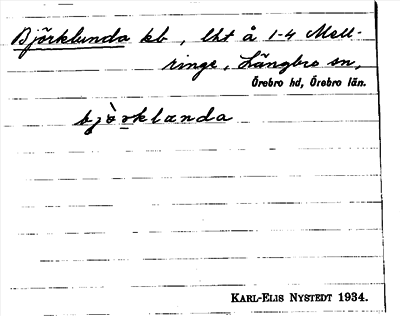 Björklunda lb, lht å 1-4 Mell-
ringe, Längbro sn,
Örebro hd, Örebro län.
bjò̀rklanda
KARL-ELIS NYSTEDT 1934.